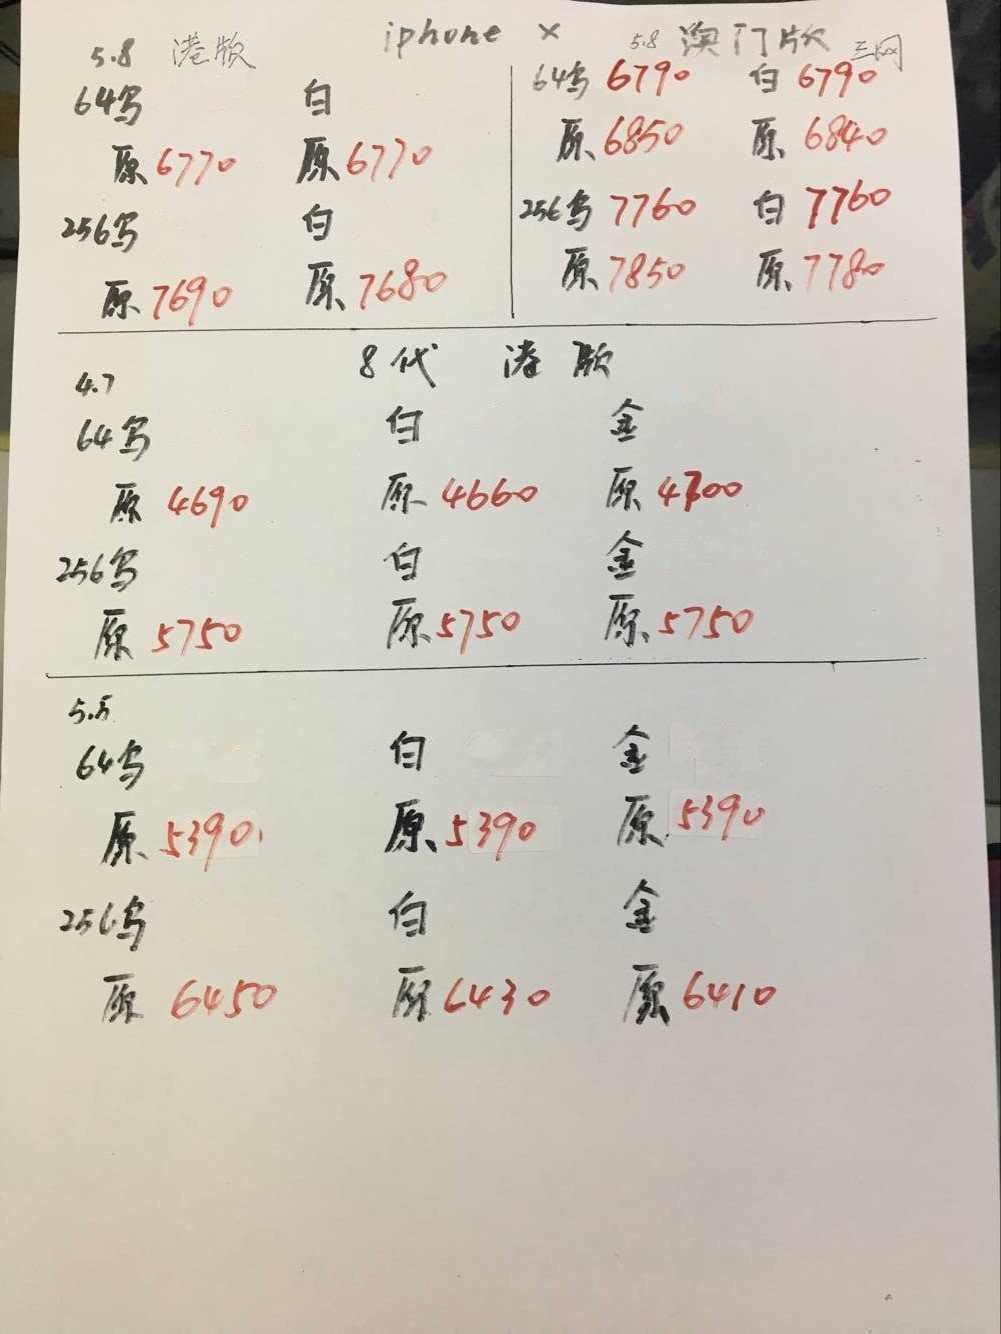 iphone ×
5.8 港版
64乌 白
原 6770 原 6770
256乌 白
原 7690 原 7680
5.8 澳门版 三网
64乌 6790 白 6790
原 6850 原 6840
256乌 7760 白 7760
原 7850 原 7780
8代 港版
4.7
64乌 白 金
原 4690 原 4660 原 4700
256乌 白 金
原 5750 原 5750 原 5750
5.5
64乌 白 金
原 5390 原 5390 原 5390
256乌 白 金
原 6450 原 6430 原 6410